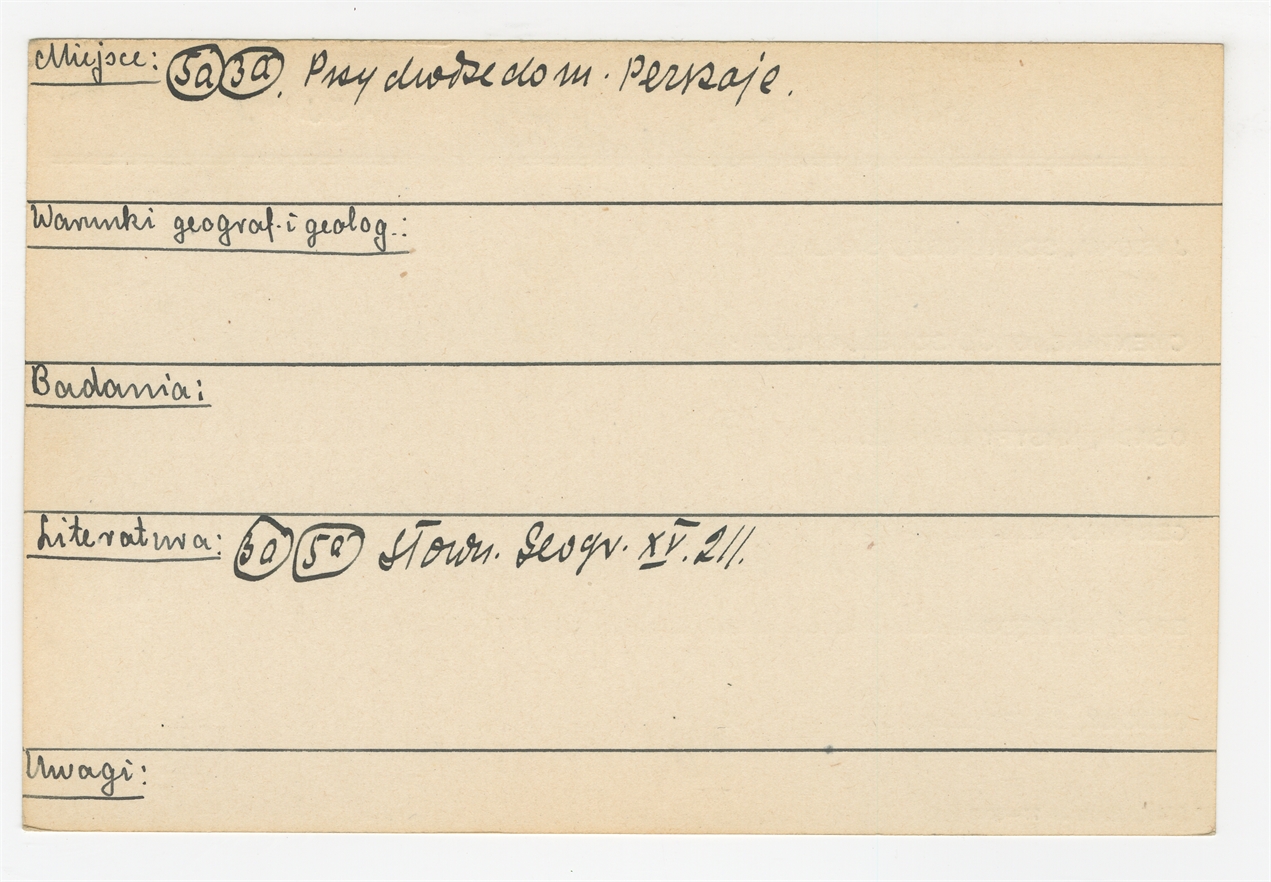 Miejsce: 5a 3a. Przy drodze do m. Perkaje.
Warunki geograf. i geolog.:
Badania:
Literatura: 3a 5a Słown. Geogr. XV. 211.
Uwagi: